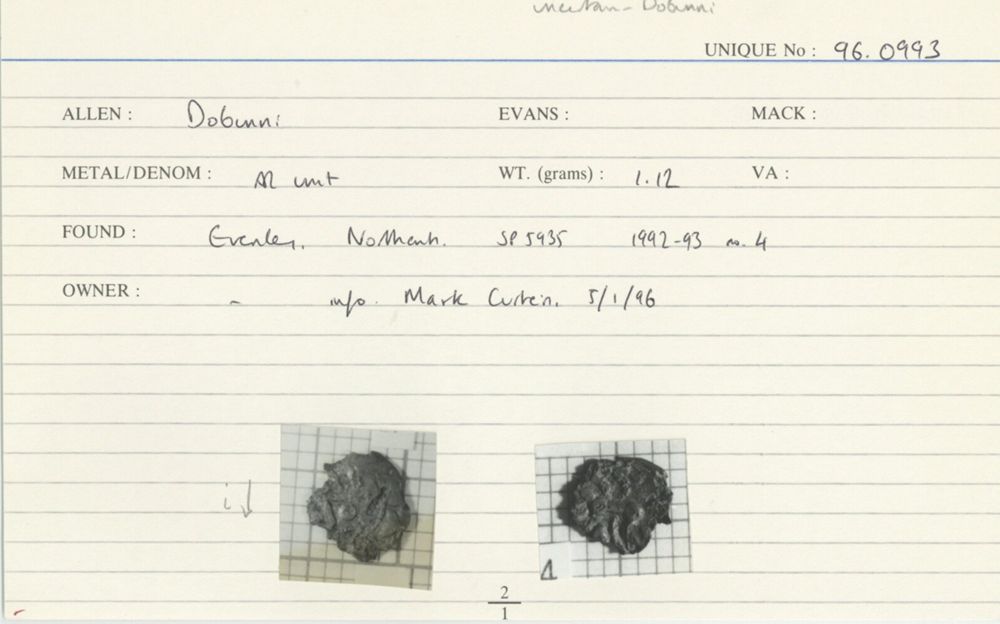 uncertain - Dobunni
UNIQUE No : 96.0993
ALLEN : Dobunni EVANS : MACK :
METAL/DENOM : AR unit WT. (grams) : 1.12 VA :
FOUND : Evenley, Northants. SP 5935 1992-93 no. 4
OWNER : - info. Mark Curteis, 5/1/96
i ↓
4
2
1